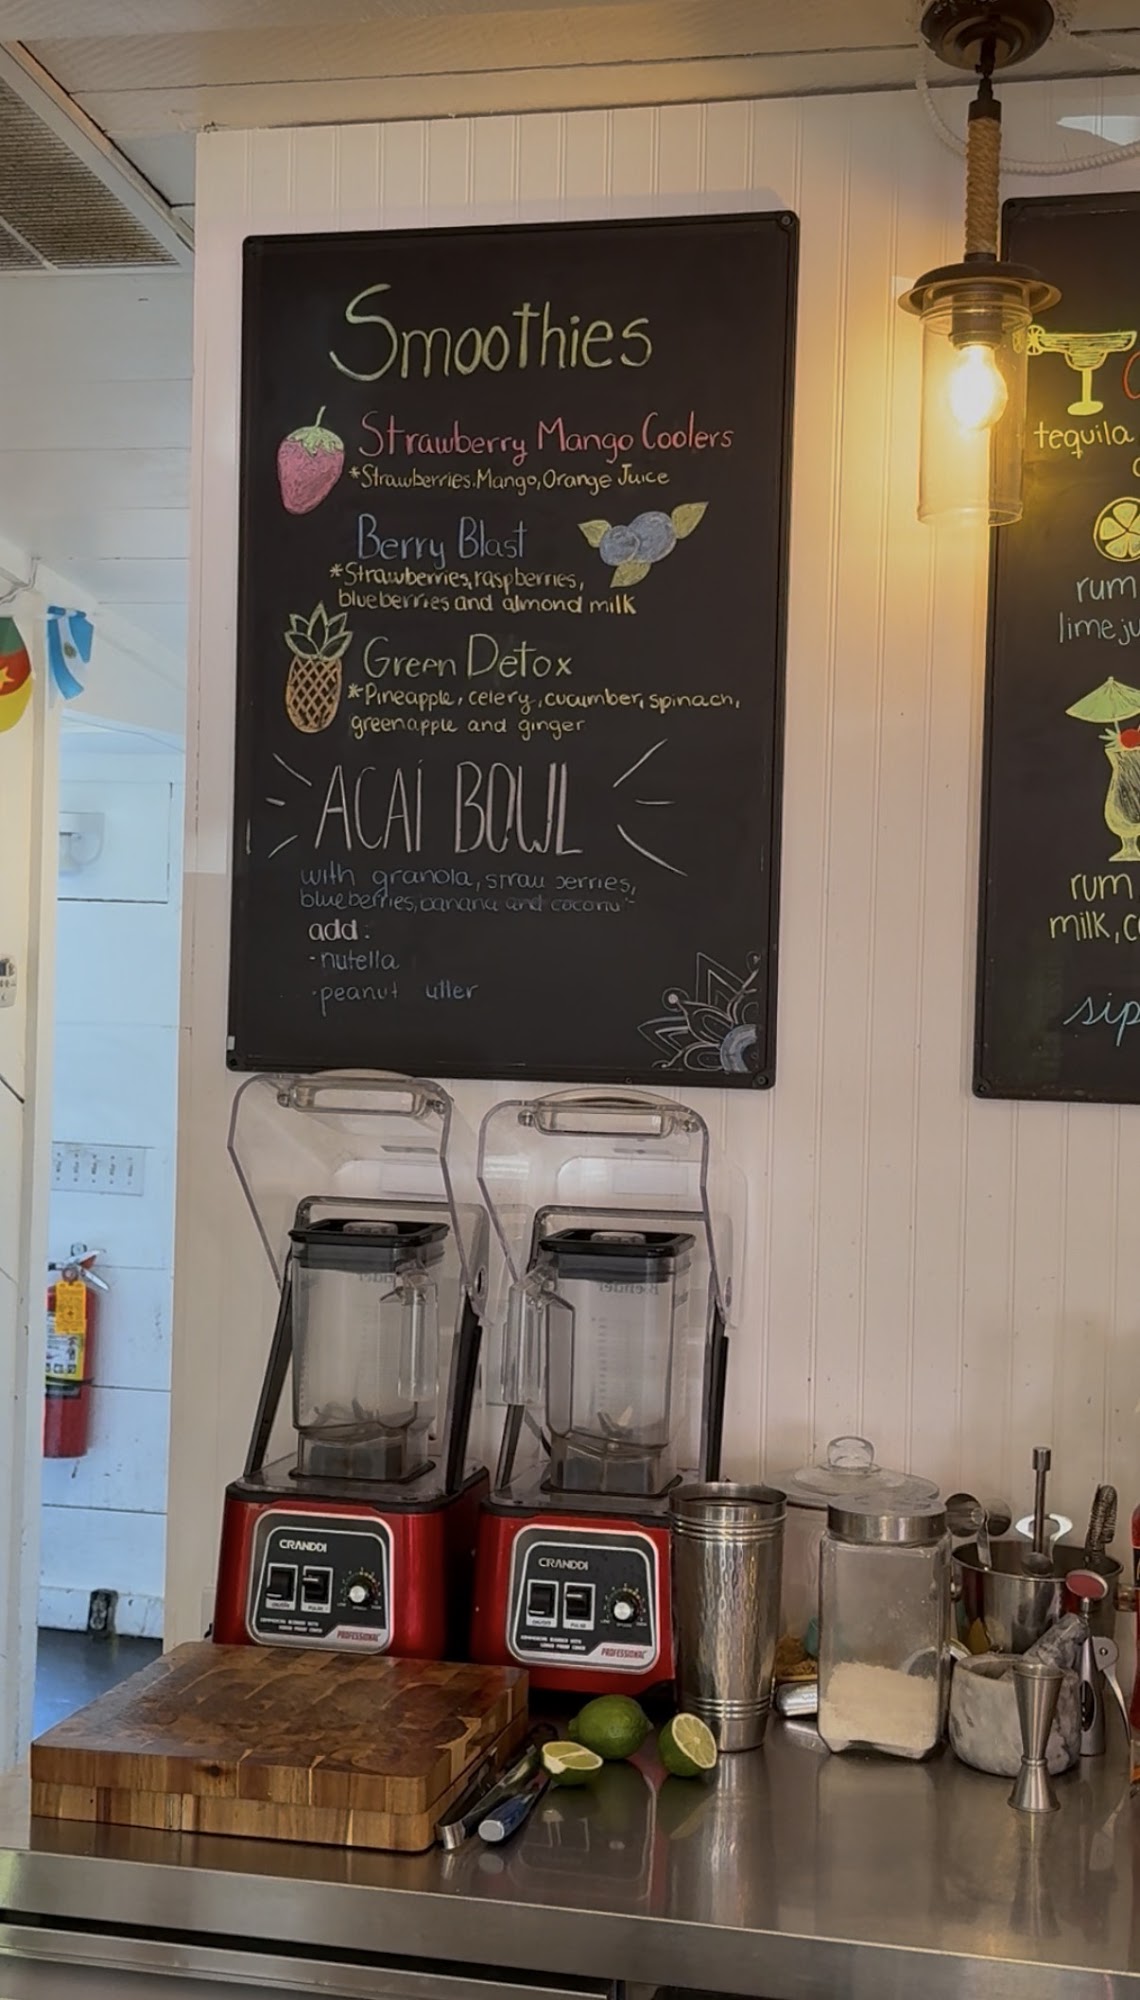 Smoothies
Strawberry Mango Coolers
*Strawberries, Mango, Orange Juice
Berry Blast
*Strawberries, raspberries,
blueberries and almond milk
Green Detox
*Pineapple, celery, cucumber, spinach,
green apple and ginger
ACAÍ BOWL
with granola, straw berries,
blueberries, banana and coconu
add:
-nutella
-peanut utter
tequila
rum
lime ju
rum
milk, c
sip
CRANDDI
PULSE
PROFESSIONAL
CRANDDI
PULSE
PROFESSIONAL
Blender